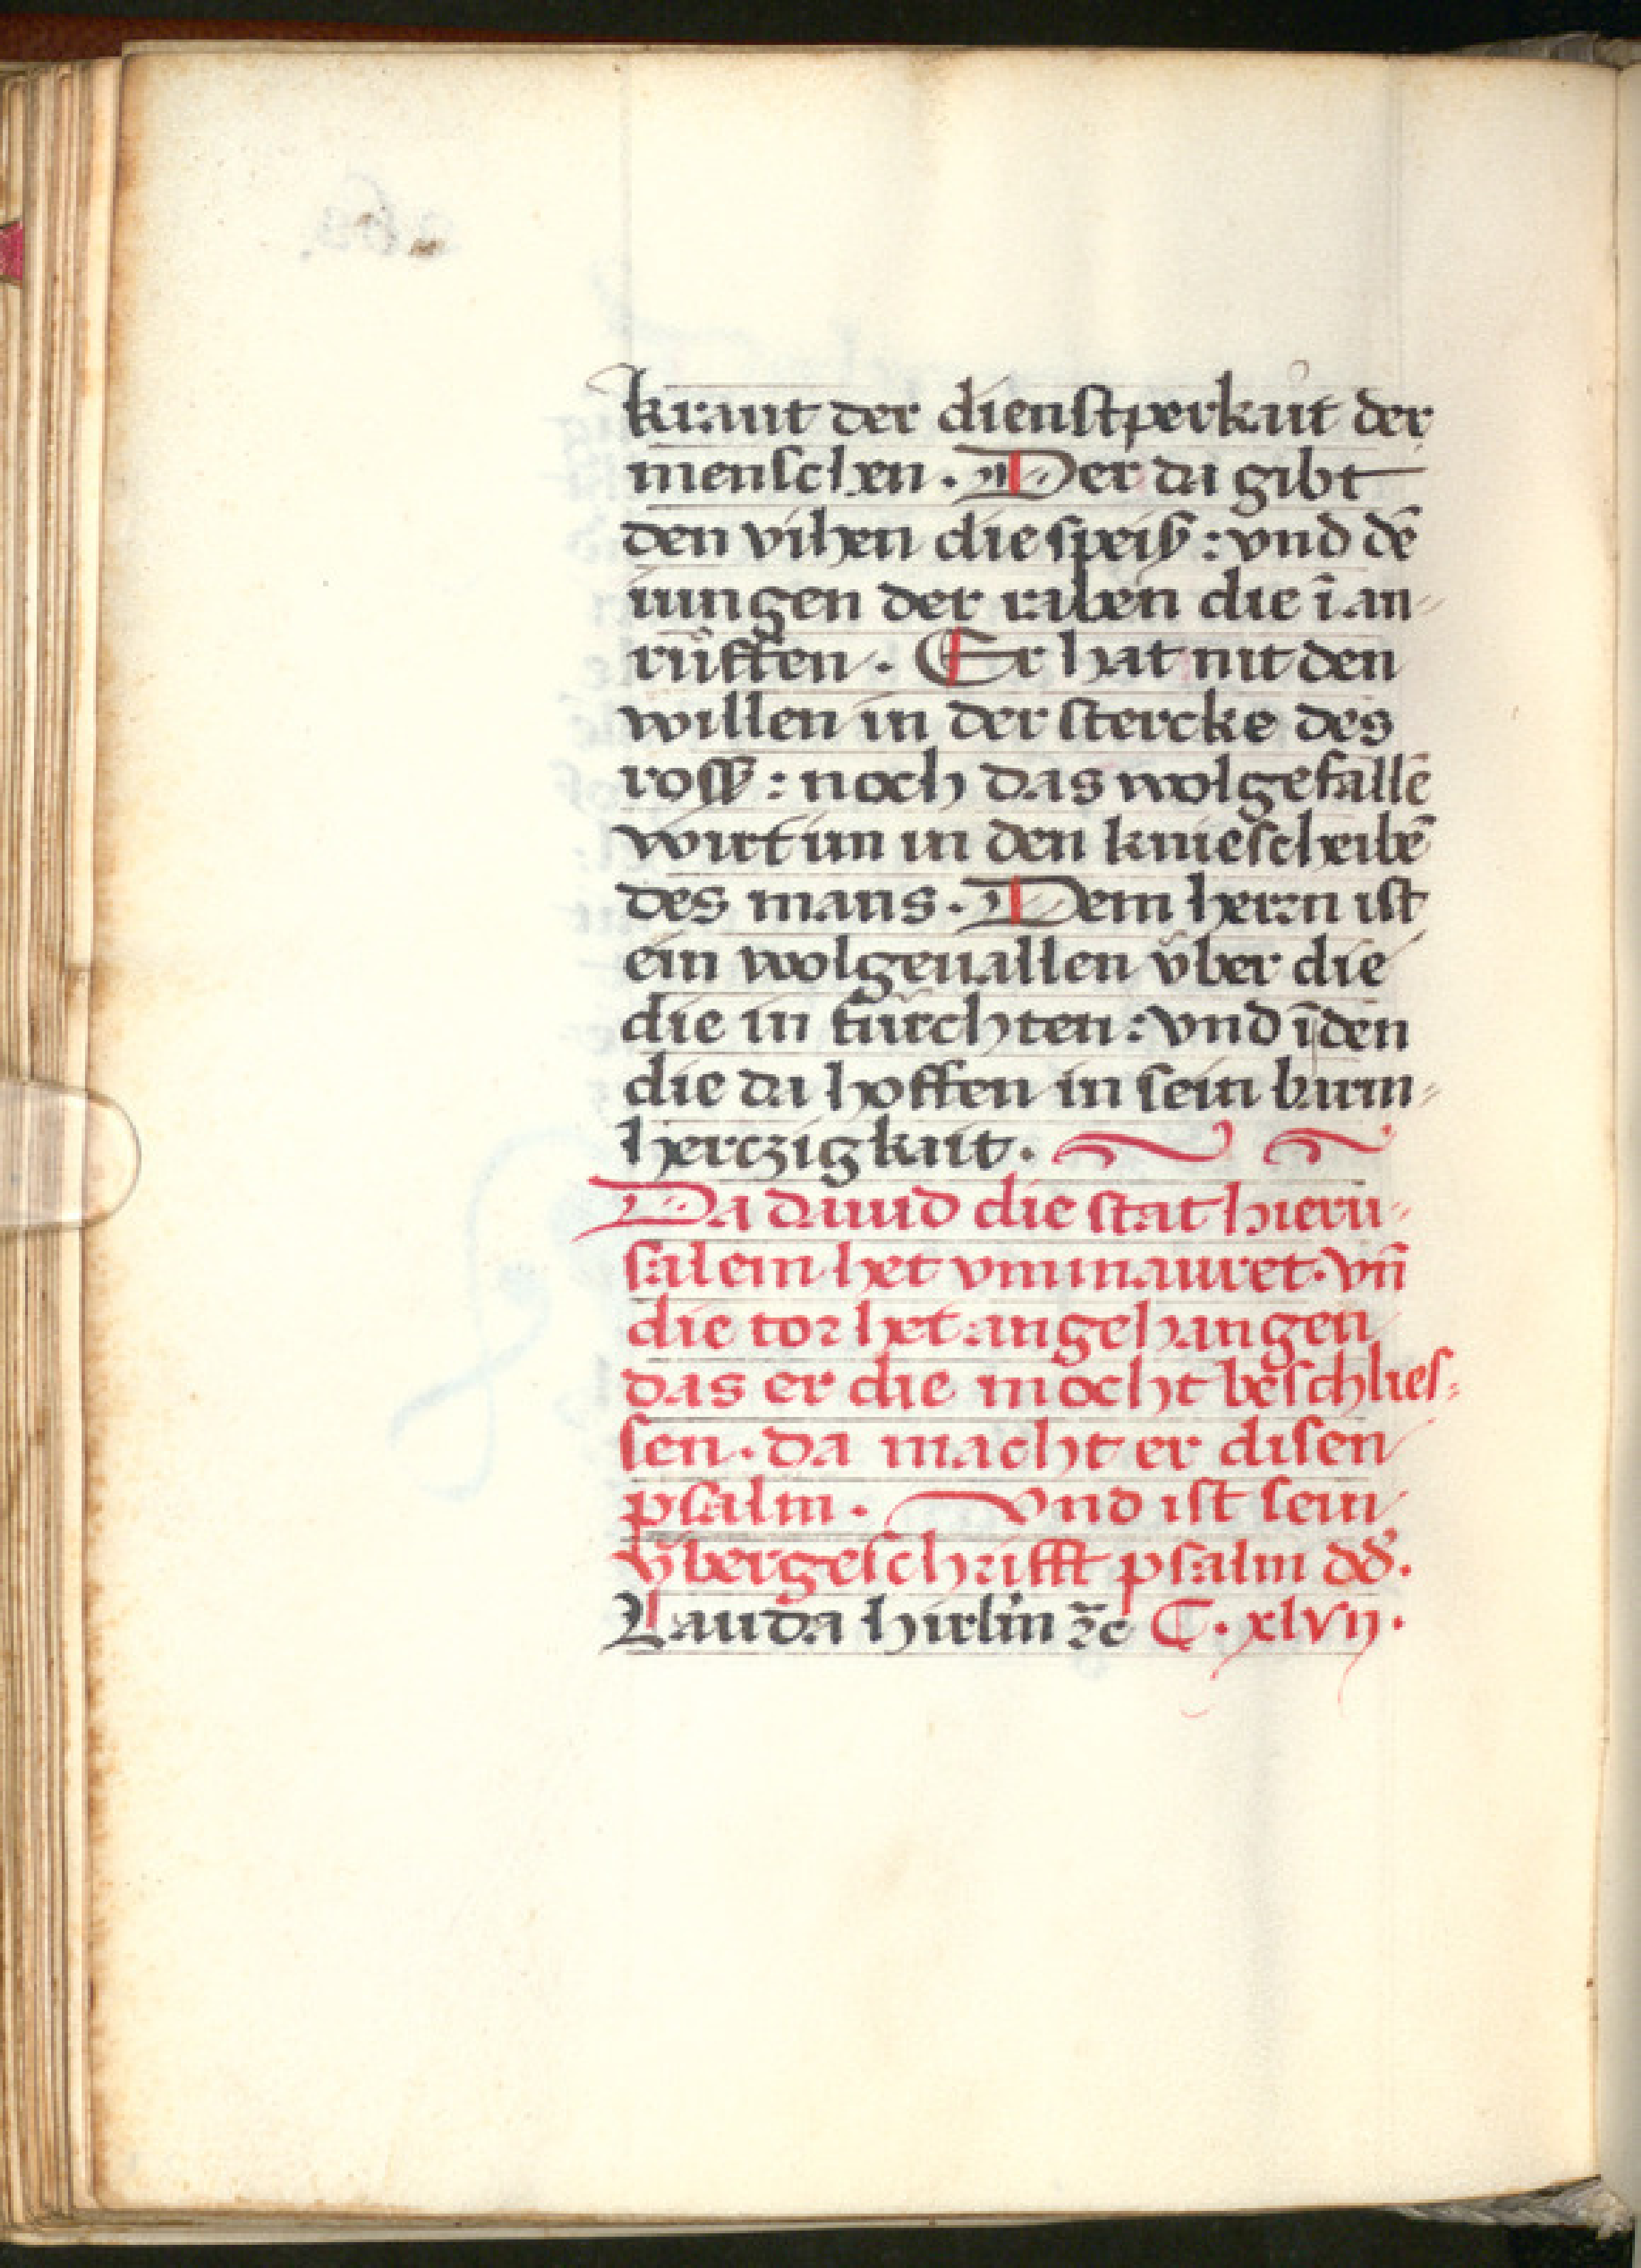 kraut der dienstperkait der
menschen. Der da gibt
den vihen die speiß: vnd dē
iungen der raben die in an-
růffen. Er hat nit den
willen in der stercke des
roſſz: noch das wolgefallē
wirt im in den kniescheibē
des mans. Dem herrn ist
ein wolgeuallen v̈ber die
die in fürchten: vnd ī den
die da hoffen in sein barm-
herczigkait.
Da dauid die stat hieru-
salem het vmmauret. vn̄
die tor het angehangen
das er die mocht beschlies-
sen. da macht er disen
psalm. Vnd ist sein
v̈bergeschrifft psalm dd.
Lauda hirl'm ꝛc C. xlvij.